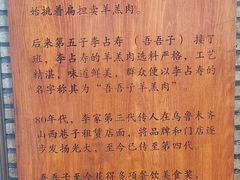 始挑着扁担卖羊羔肉。
后来第五子李占寿（吾吾子）接了
班，李占寿的羊羔肉选料严格，工艺
精湛，味道鲜美，群众便以李占寿的
名字称其为“吾吾子羊羔肉”
80年代，李家第三代传人在乌鲁木齐
山西巷子租赁店面，将品牌和门店逐
步发扬光大，至今已传至第四代。
吾吾子至今获得多项餐饮美食奖，